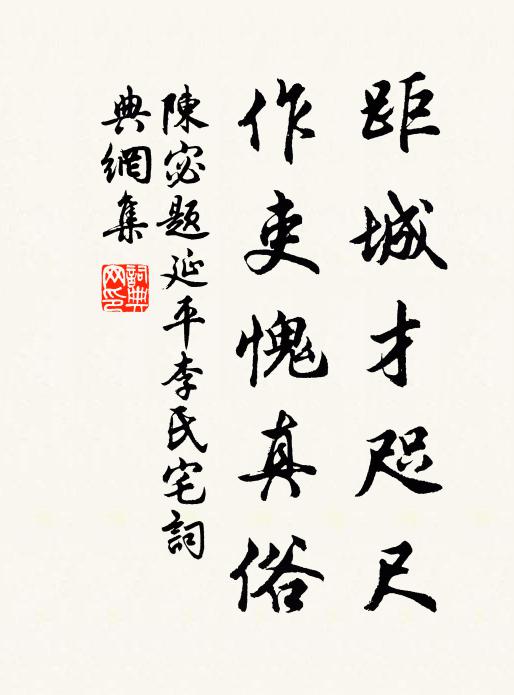 距城才咫尺
作吏愧真俗
陳宓題延平李氏宅詞
典網集
詞典网印